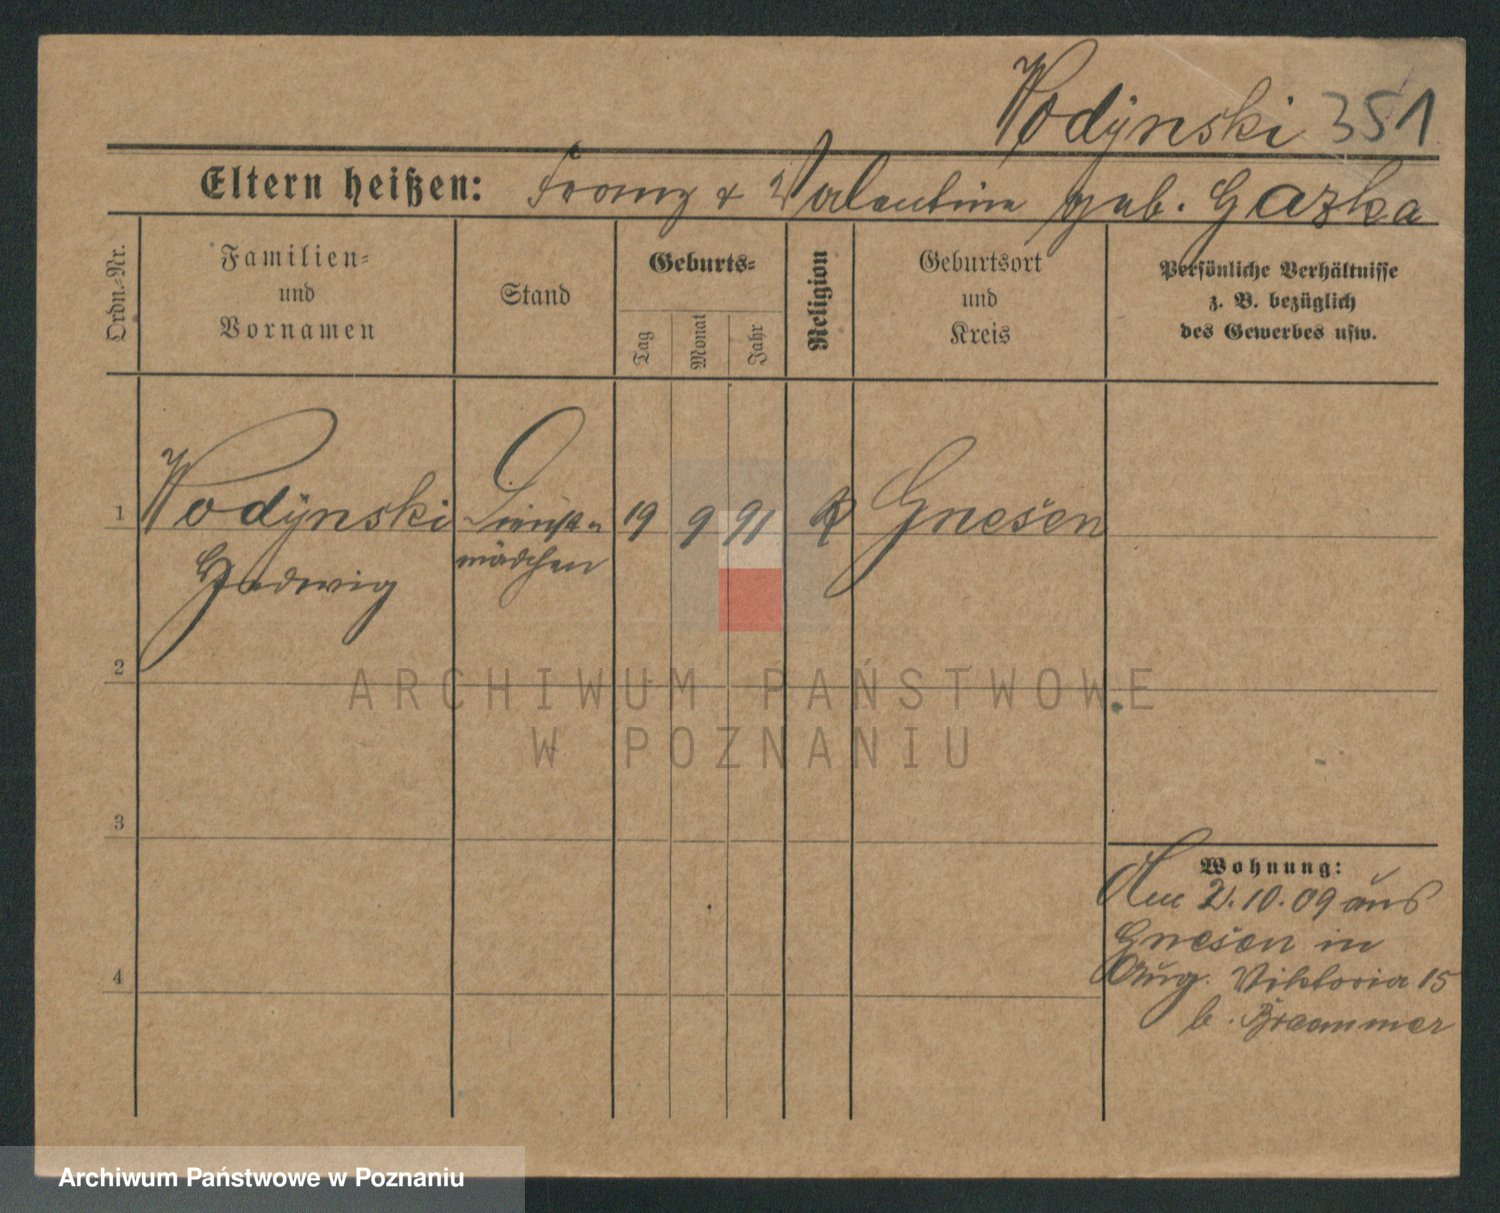 Wodÿnski 351
Eltern heißen: Franz & Valentine geb. Gazka
Ordn.-Nr.
Familien-
und
Vornamen
Stand
Geburts-
Tag
Monat
Jahr
Religion
Geburtsort
und
Kreis
Persönliche Verhältnisse
z. B. bezüglich
des Gewerbes usw.
1 Wodÿnski Dienst- 19 9 91 K Gnesen
Hedwig mädchen
2
ARCHIWUM PAŃSTWOWE
W POZNANIU
3
Wohnung:
Am 2.10.09 aus
Gnesen in
4 Aug. Viktoria 15
b.
Archiwum Państwowe w Poznaniu